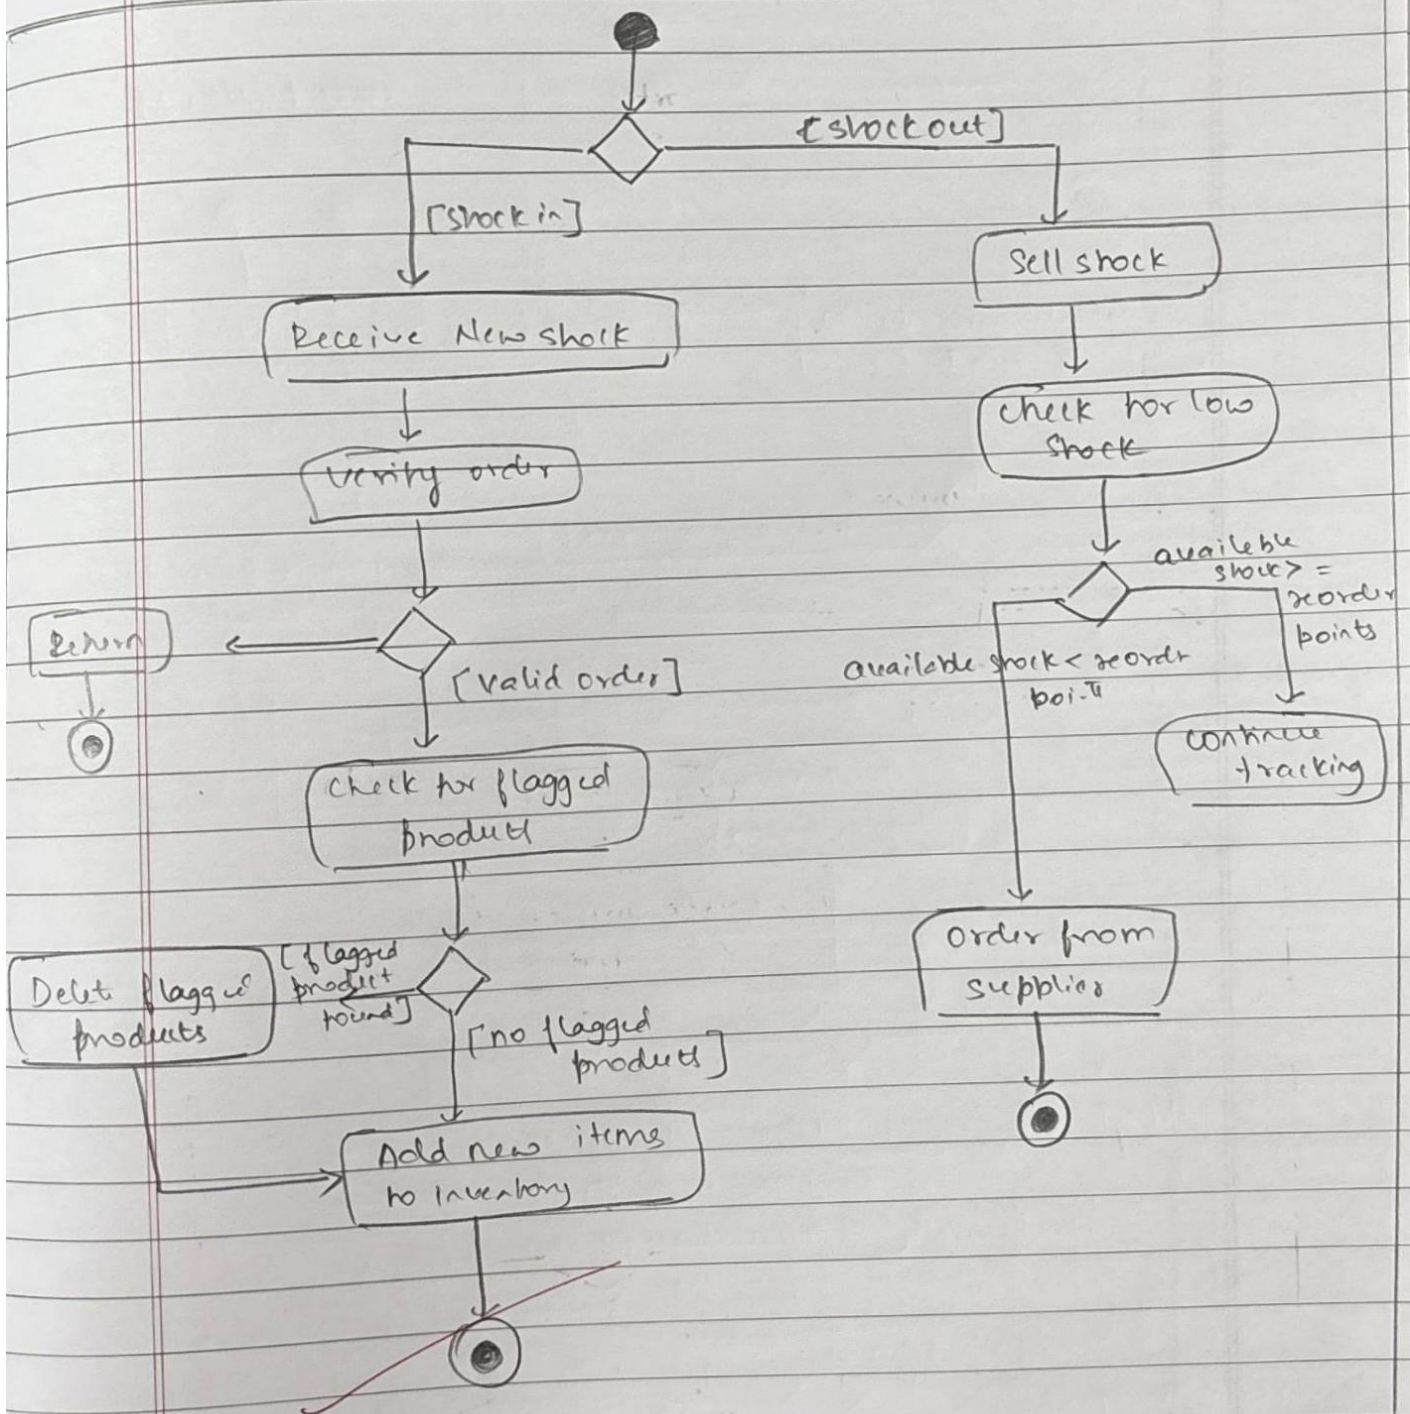 [stock out]
[stock in]
Sell stock
Receive New stock
Check for low
stock
Verify order
available
stock > =
reorder
points
Return
[valid order]
available stock < reordr
point
continue
tracking
Check for flagged
products
order from
supplier
[flagged
product
found]
Delet flagged
products
[no flagged
products]
Add new items
to inventory